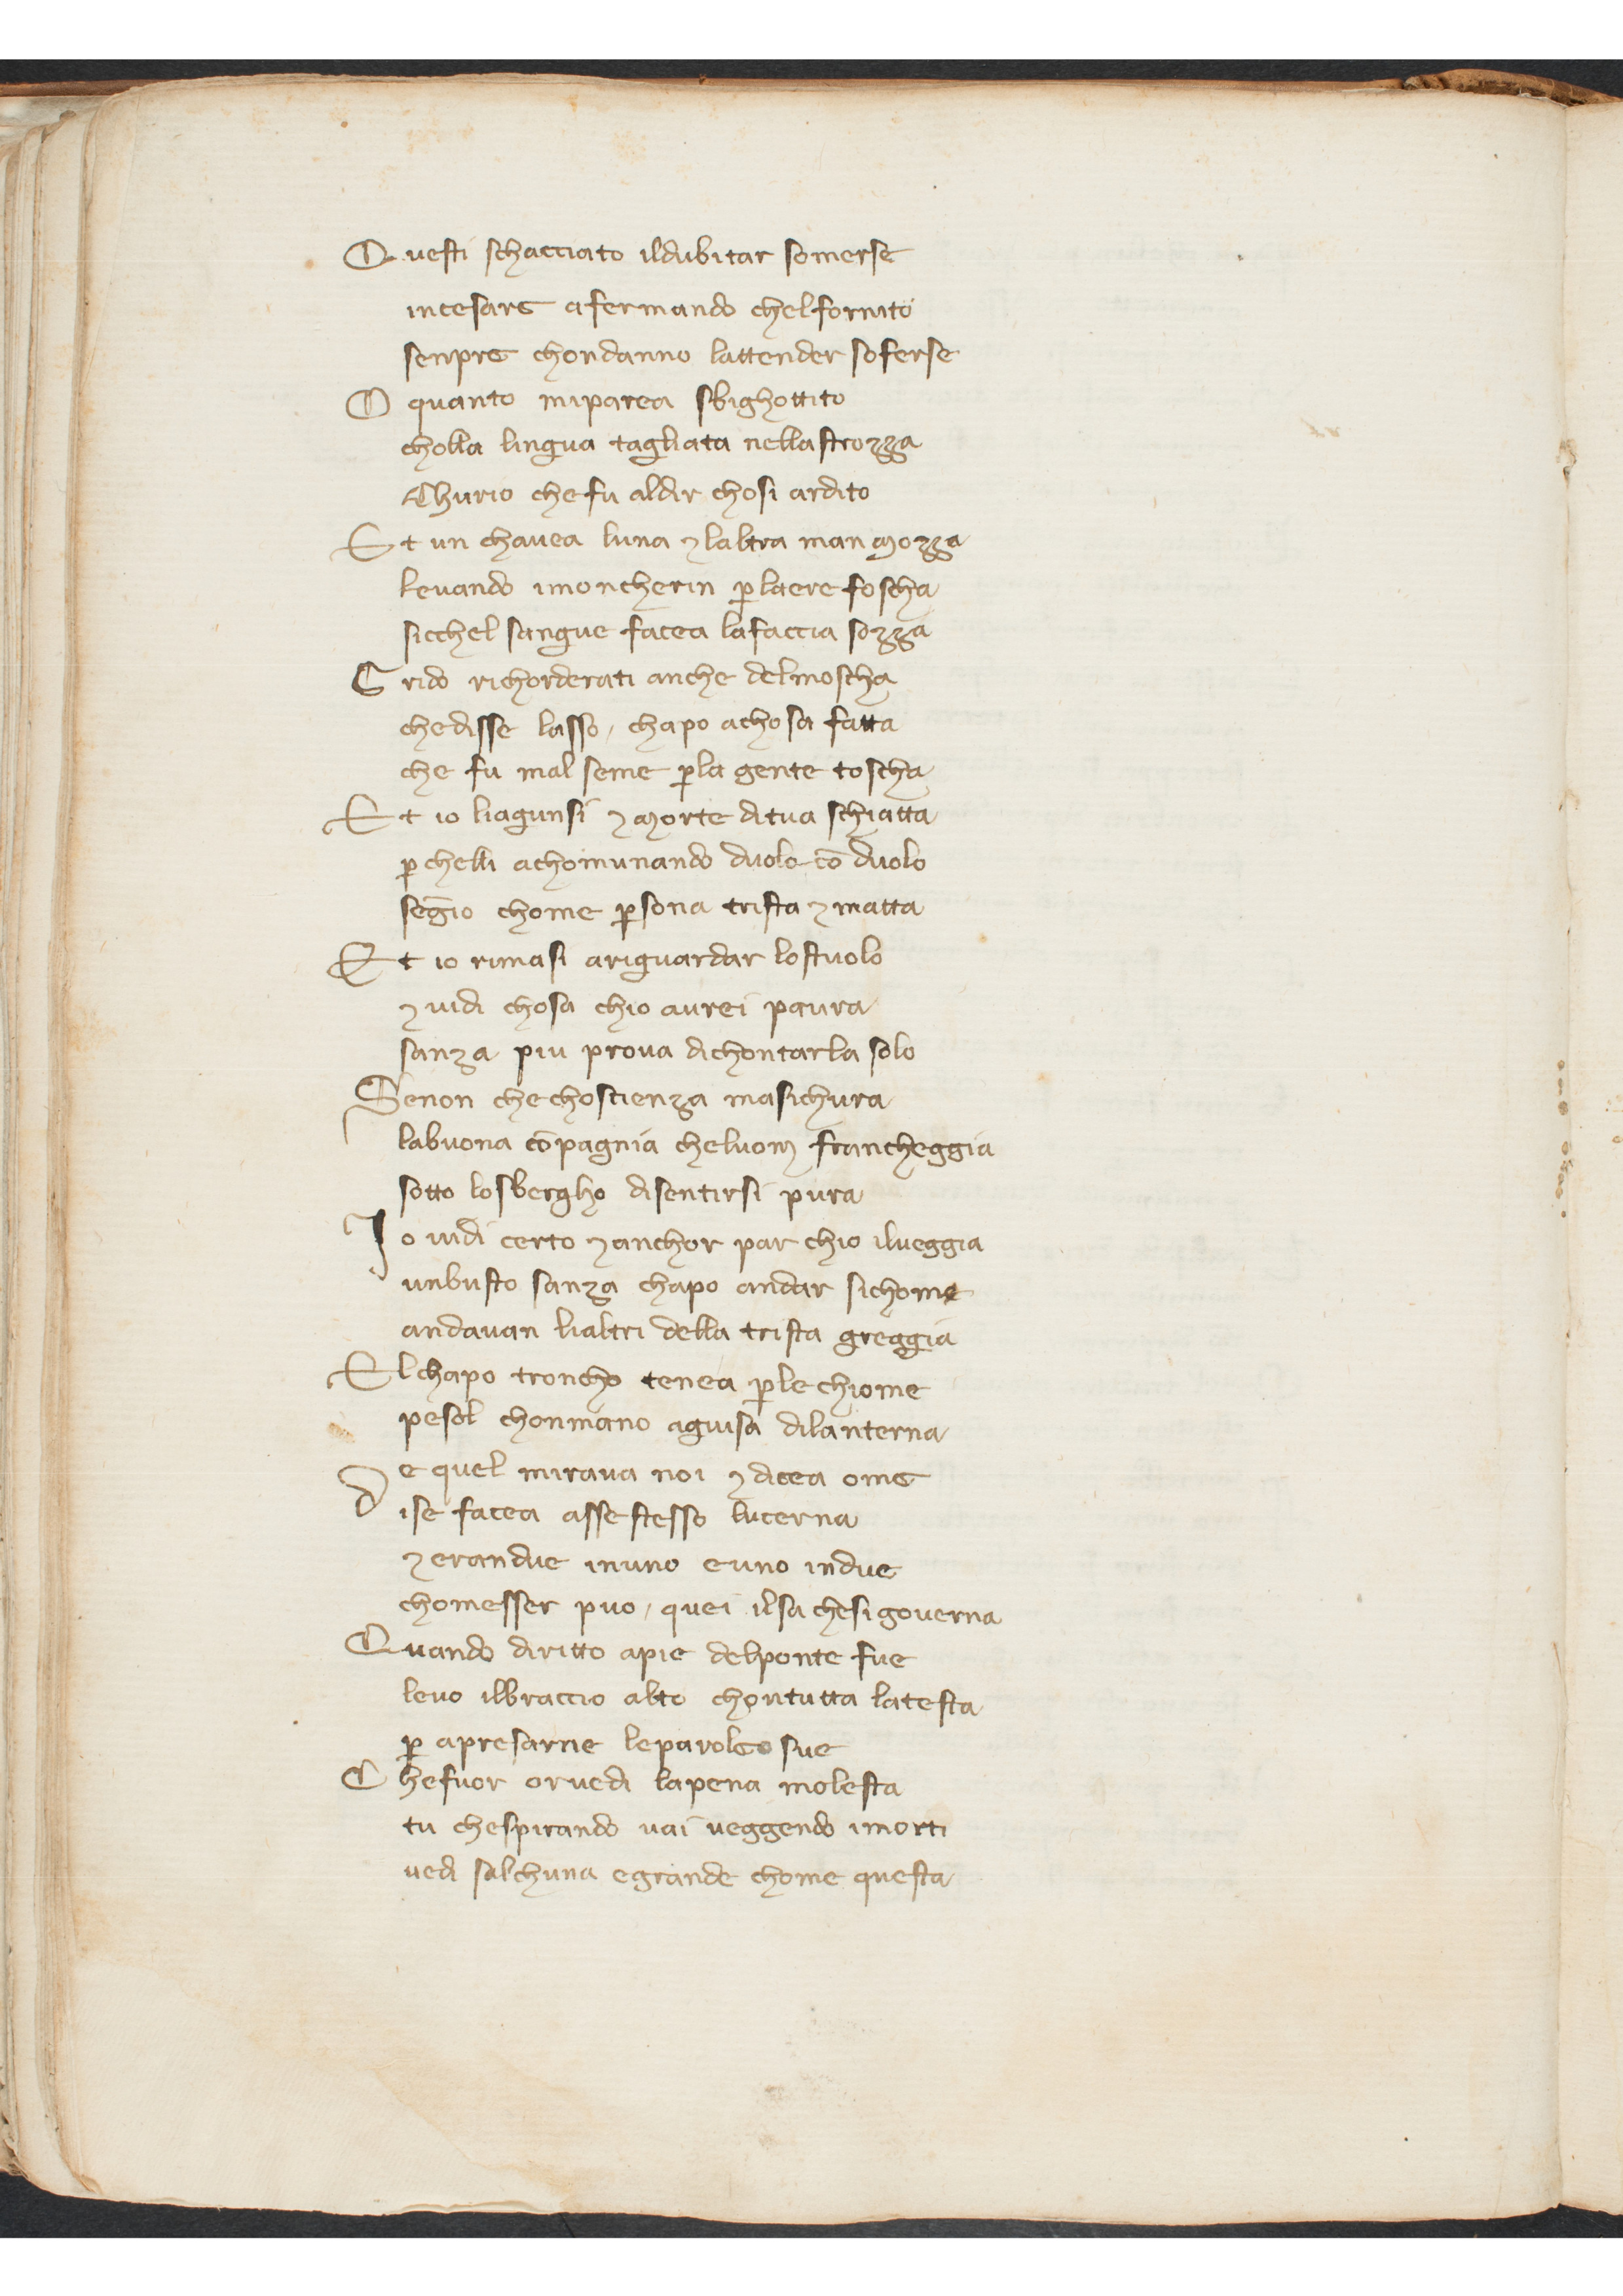 Questi schacciato ildubitar somerse
incesare afermando chelfornito
senpre chondanno lattender soferse
O quanto miparea sbighottito
cholla lingua tagliata nellastrozza
Churio chefu aldir chosi ardito
Et un chauea luna ⁊ laltra man mozza
leuando imoncherin ꝑlaere foscha
sicchel sangue facea lafaccia sozza
Grido richorderati anche delmoscha
chedisse lasso / chapo achosa fatta
che fu mal seme ꝑla gente toscha
Et io liagunsi ⁊ morte ditua schiatta
ꝑ chelli achomunando duolo cō duolo
segīo chome ꝑsona trista ⁊ matta
Et io rimasi ariguardar lostuolo
⁊ uidi chosa chio aurei paura
sanza piu proua dichontarla solo
Senon chechoscienza masichura
labuona cōpagnia cheluom francheggia
sotto losbergho disentirsi pura
Io uidi certo ⁊ anchor par chio ilueggia
unbusto sanza chapo andar sichome
andauan lialtri della trista greggia
El chapo troncho tenea ꝑle chiome
pesol chonmano aguisa dilanterna
e quel miraua noi ⁊ dicea ome
dise facea assestesso lucerna
⁊ erandue inuno euno indue
chomesser puo / quei ilsa chesigouerna
Quando diritto apie delponte fue
leuo ilbraccio alto chontutta latesta
ꝑ apresarne leparoleo sue
Chefuor oruedi lapena molesta
tu chespirando uai ueggendo imorti
uedi salchuna egrande chome questa